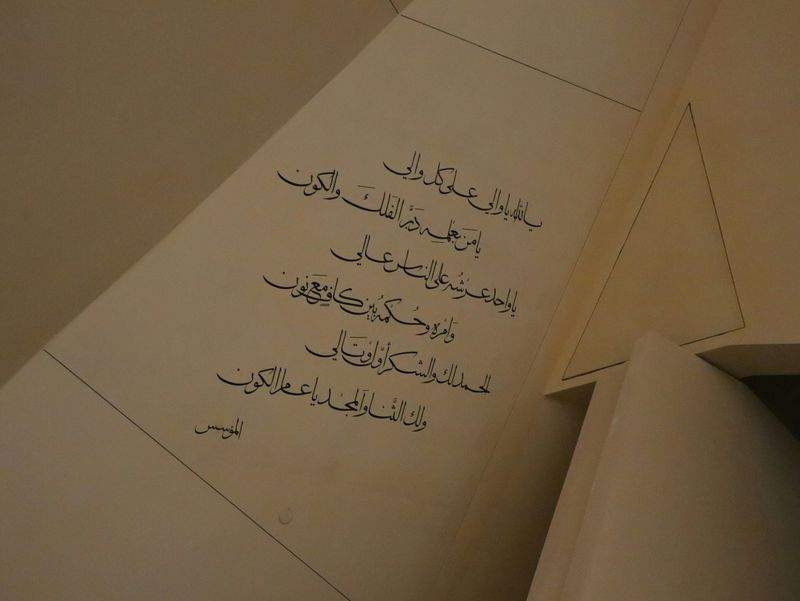 يالله يا والي على كل والي
يا من بعلمه دبّر الفلك والكون
يا واحد عرشه على الناس عالي
وامره وحكمه بين كافٍ مع نون
الحمد لك والشكر أوّل وتالي
ولك الثّنا والمجد يا عالم الكون
المؤسس